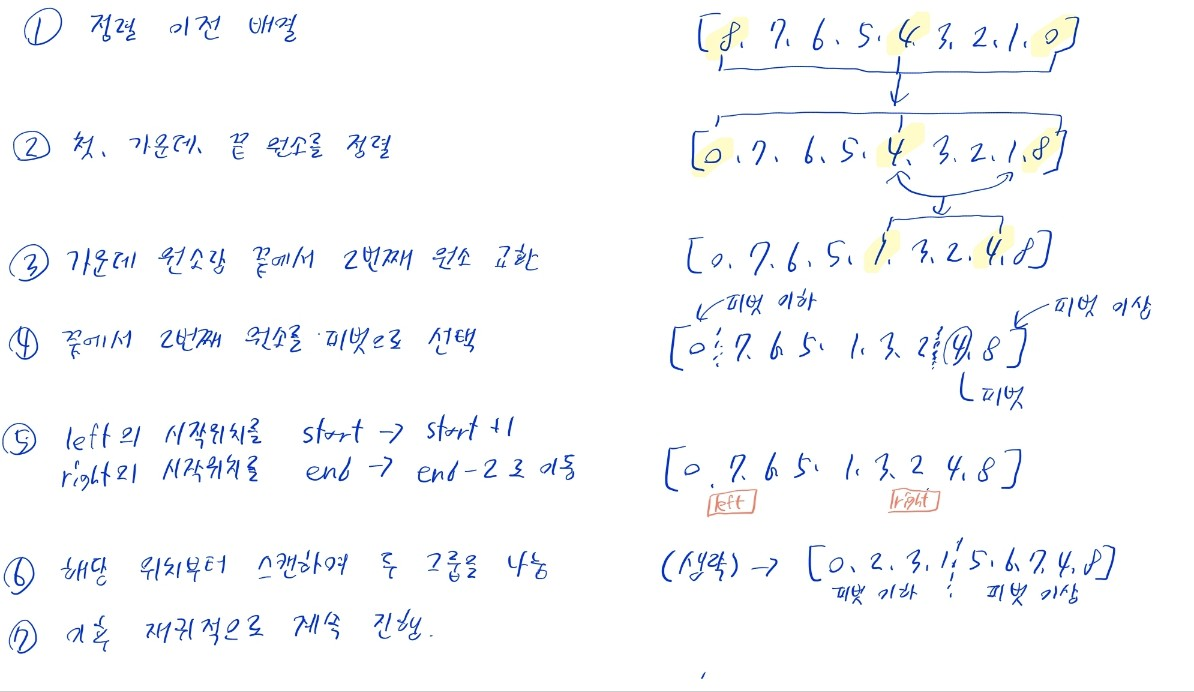 ① 정렬 이전 배열
[8. 7. 6. 5. 4. 3. 2. 1. 0]
② 첫, 가운데, 끝 원소를 정렬
[0. 7. 6. 5. 4. 3. 2. 1. 8]
③ 가운데 원소랑 끝에서 2번째 원소 교환
[0. 7. 6. 5. 1. 3. 2. 4. 8]
피벗 이하
피벗 이상
④ 끝에서 2번째 원소를 피벗으로 선택
[0 7. 6. 5. 1. 3. 2 4. 8]
피벗
⑤ left의 시작위치를 start → start +1
right의 시작위치를 end → end-2로 이동
[0. 7. 6. 5. 1. 3. 2. 4. 8]
left
right
⑥ 해당 위치부터 스캔하여 두 그룹을 나눔
(생략) → [0. 2. 3. 1. 5. 6. 7. 4. 8]
피벗 이하
피벗 이상
⑦ 이후 재귀적으로 계속 진행.